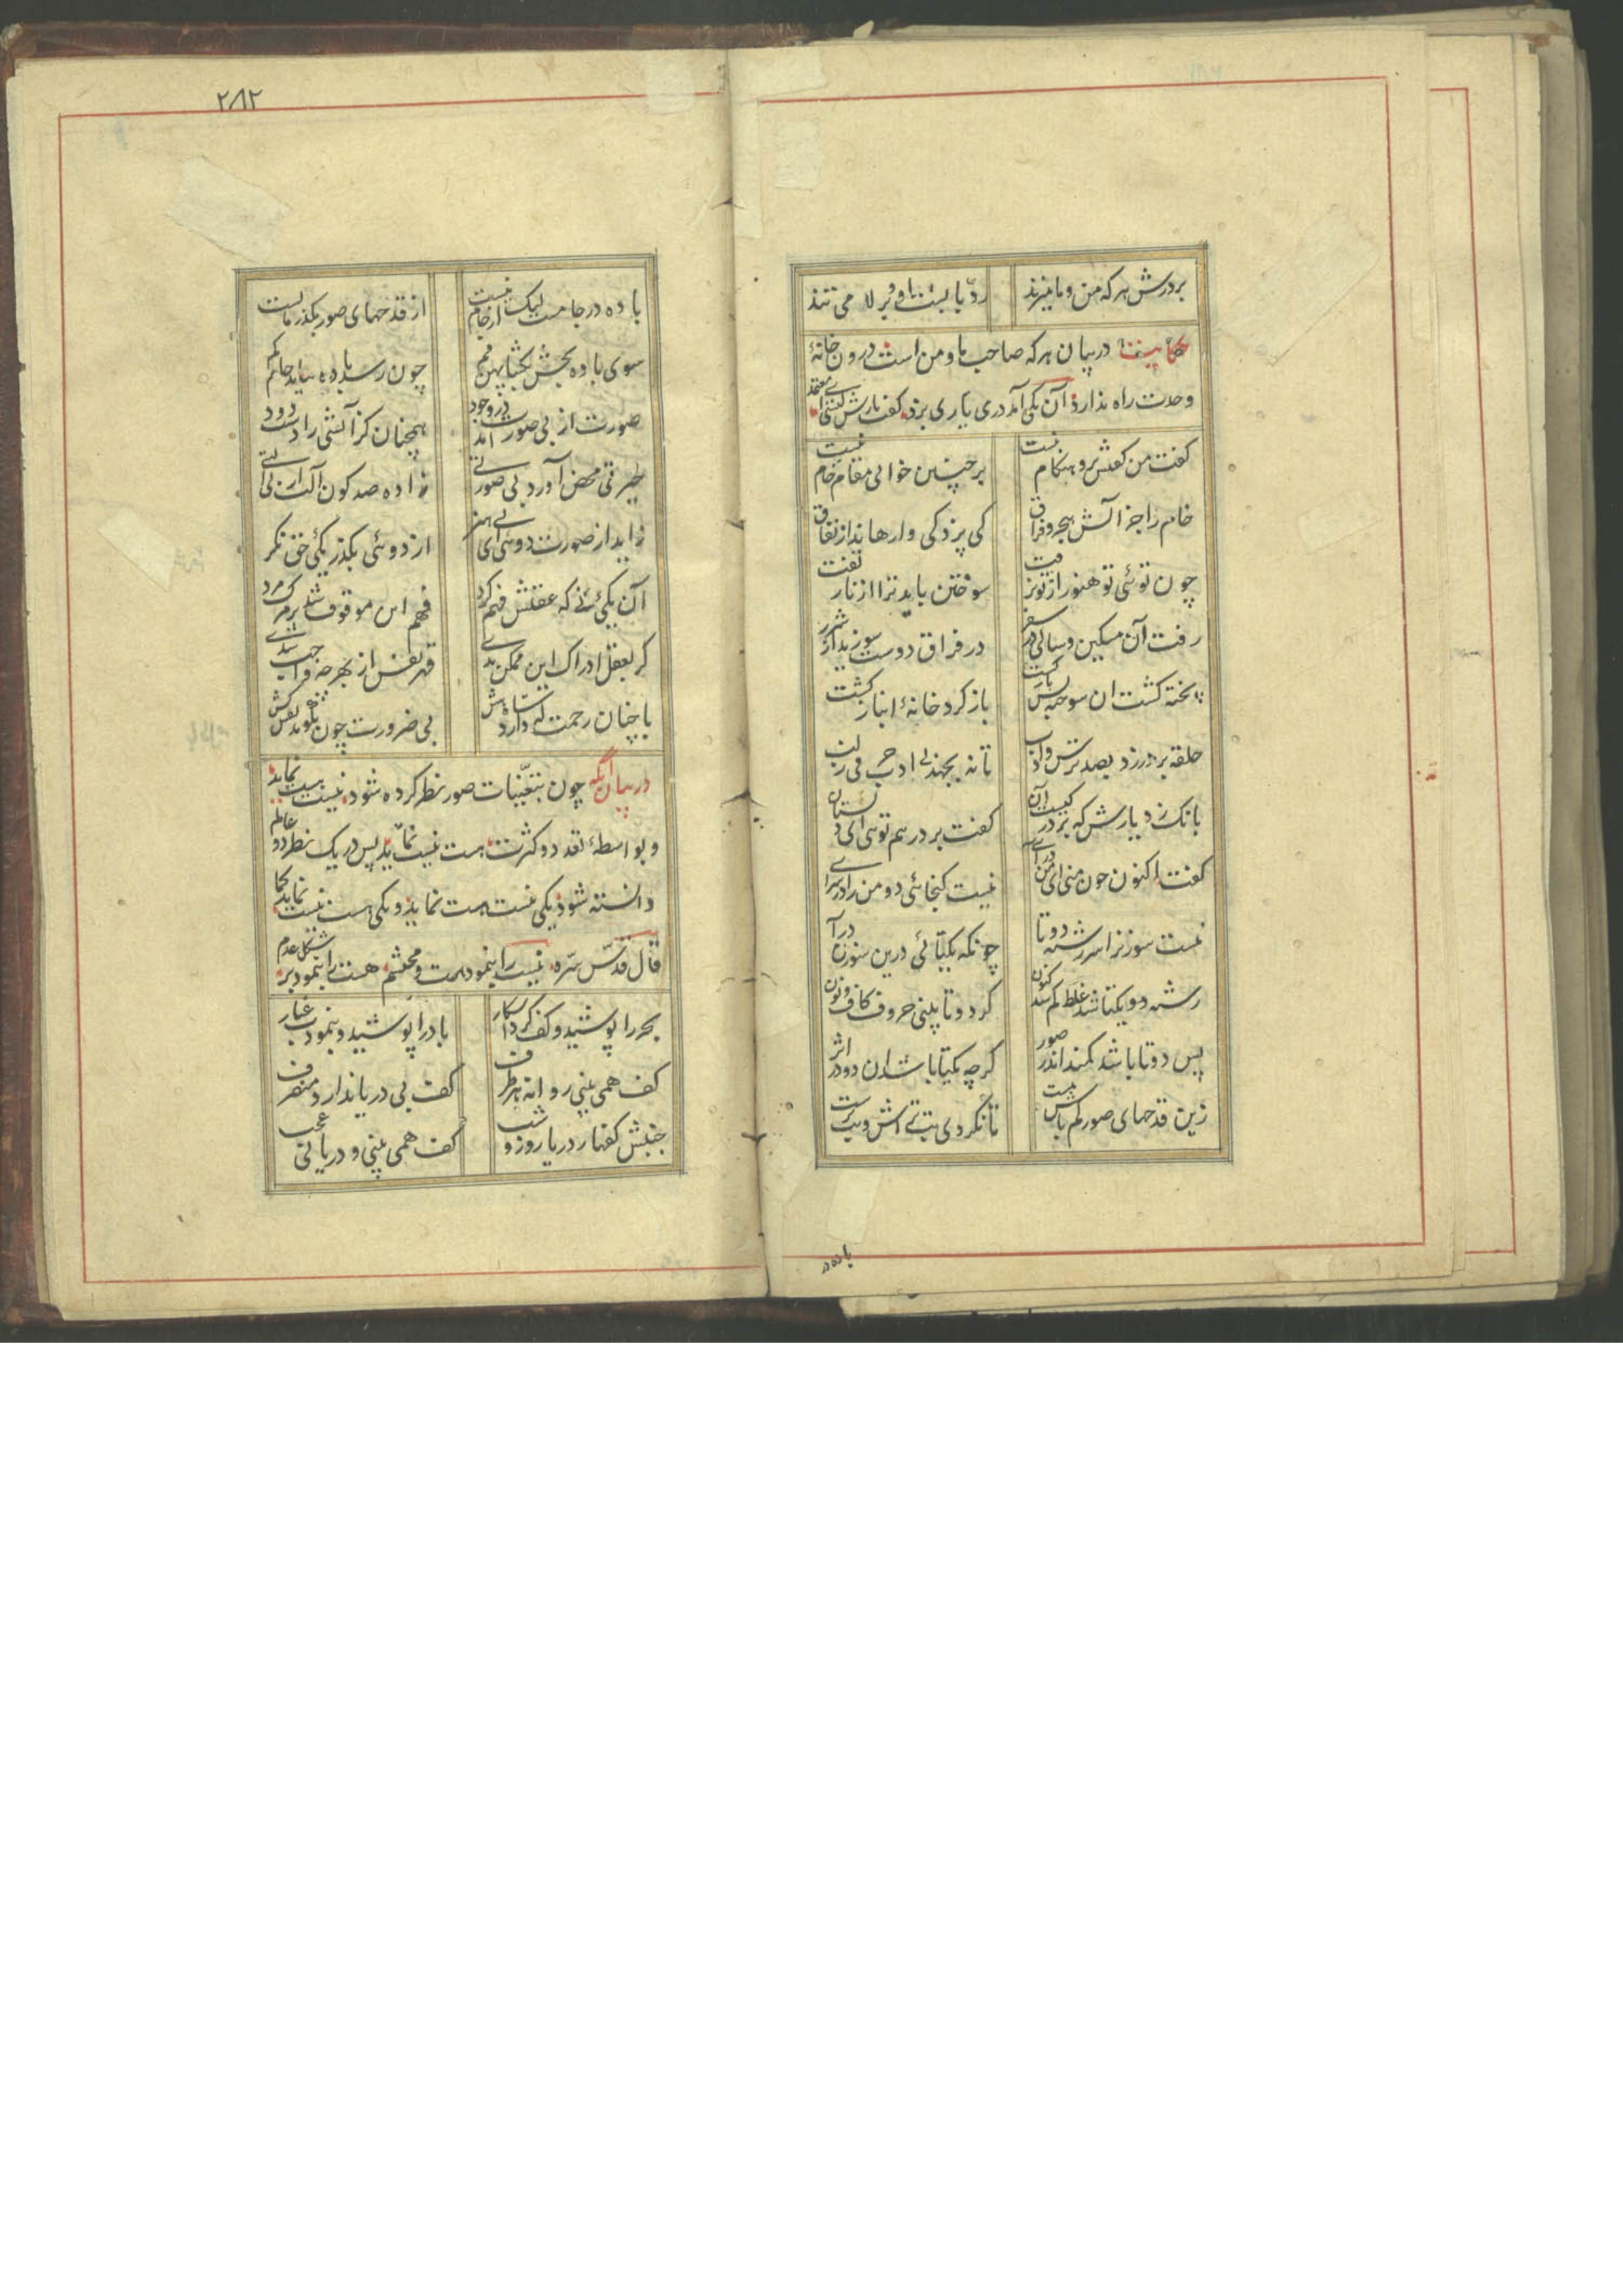 بردرش هر که من و ما میزند
ردّ بابست او و بر لا می تند
حکایت در بیان هر که صاحب ما و من است درون خانهٔ
وحدت راه ندارد آن یکی آمد دری یاری بزد گفت یارش کیستی ای معتمد
گفت من گفتش برو هنگام نیست
بر چنین خوانی مقام خام نیست
خام را جز آتش هجر و فراق
کی پزد کی وا رهاند از نفاق
چون توئی تو هنوز از تو نرفت
سوختن باید ترا از نار تفت
رفت آن مسکین و سالی در سفر
در فراق دوست سوزید از شرر
پخته گشت آن سوخته پس بازگشت
باز گرد خانهٔ انباز گشت
حلقه بر در زد بصد ترس و ادب
تا نه بجهد بی ادب حرفی ز لب
بانک زد یارش که بر در کیست آن
گفت بر در هم توئی ای دلستان
گفت اکنون چون منی ای من درآ
نیست گنجائی دو من را در سرا
نیست سوزن را سر رشته دوتا
چونکه یکتائی درین سوزن درآ
رشته دو یکتا شد غلط کم شد کنون
گر دوتا بینی حروف کاف و نون
پس دوتا باشد کمند اندر صور
گرچه یکتا باشد آن دو در اثر
زین قدحهای صور کم باش مست
تا نگردی بت تراش و بت پرست
باده در
۲۸۲
باده در جامست لیک از جام نیست
از قدحهای صور بگذر مایست
سوی باده بخش بگشا پهن فم
چون رسد باده نیاید جام کم
صورت از بی صورت آمد در وجود
همچنان کز آتشی زادست دود
حیرتی محض آورد بی صورتی
زاده صد گون آلت از بی آلتی
زاید از صورت دوئی ای بی هنر
از دوئی بگذر یکئی حق نگر
آن یکئی نی که عقلش فهم کرد
فهم این موقوف شد بر مرگ مرد
گر بعقل ادراک این ممکن بدی
قهر نفس از بهر چه واجب شدی
با چنان رحمت که دارد شاه هش
بی ضرورت چون بگوید نفس کش
در بیان آنکه چون بتعیّنات صور نظر کرده شود نیست هست نماید
و بواسطهٔ تعدد و کثرت هست نیست نماید پس در یک نظر دو عالم
دانسته شود یکی نیست هست نماید و یکی هست نیست نماید کما
قال قدّس سرّه نیست را بنمود هست و محتشم هست را بنمود بر شکل عدم
بحر را پوشید و کف کرد آشکار
باد را پوشید و بنمودت غبار
کف همی بینی روانه هر طرف
کف بی دریا ندارد منصرف
جنبش کفها ز دریا روز و شب
کف همی بینی و دریا نی عجب